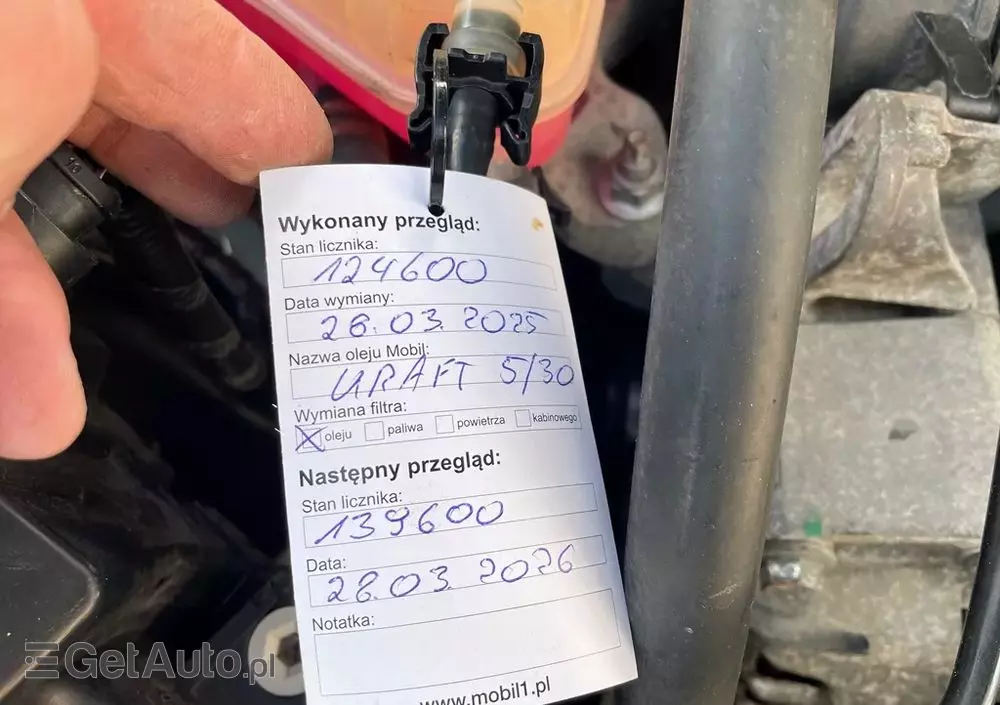 Wykonany przegląd:
Stan licznika:
124600
Data wymiany:
28.03.2025
Nazwa oleju Mobil:
KRAFT 5/30
Wymiana filtra:
oleju paliwa powietrza kabinowego
Następny przegląd:
Stan licznika:
139600
Data:
28.03.2026
Notatka:
www.mobil1.pl
GetAuto.pl